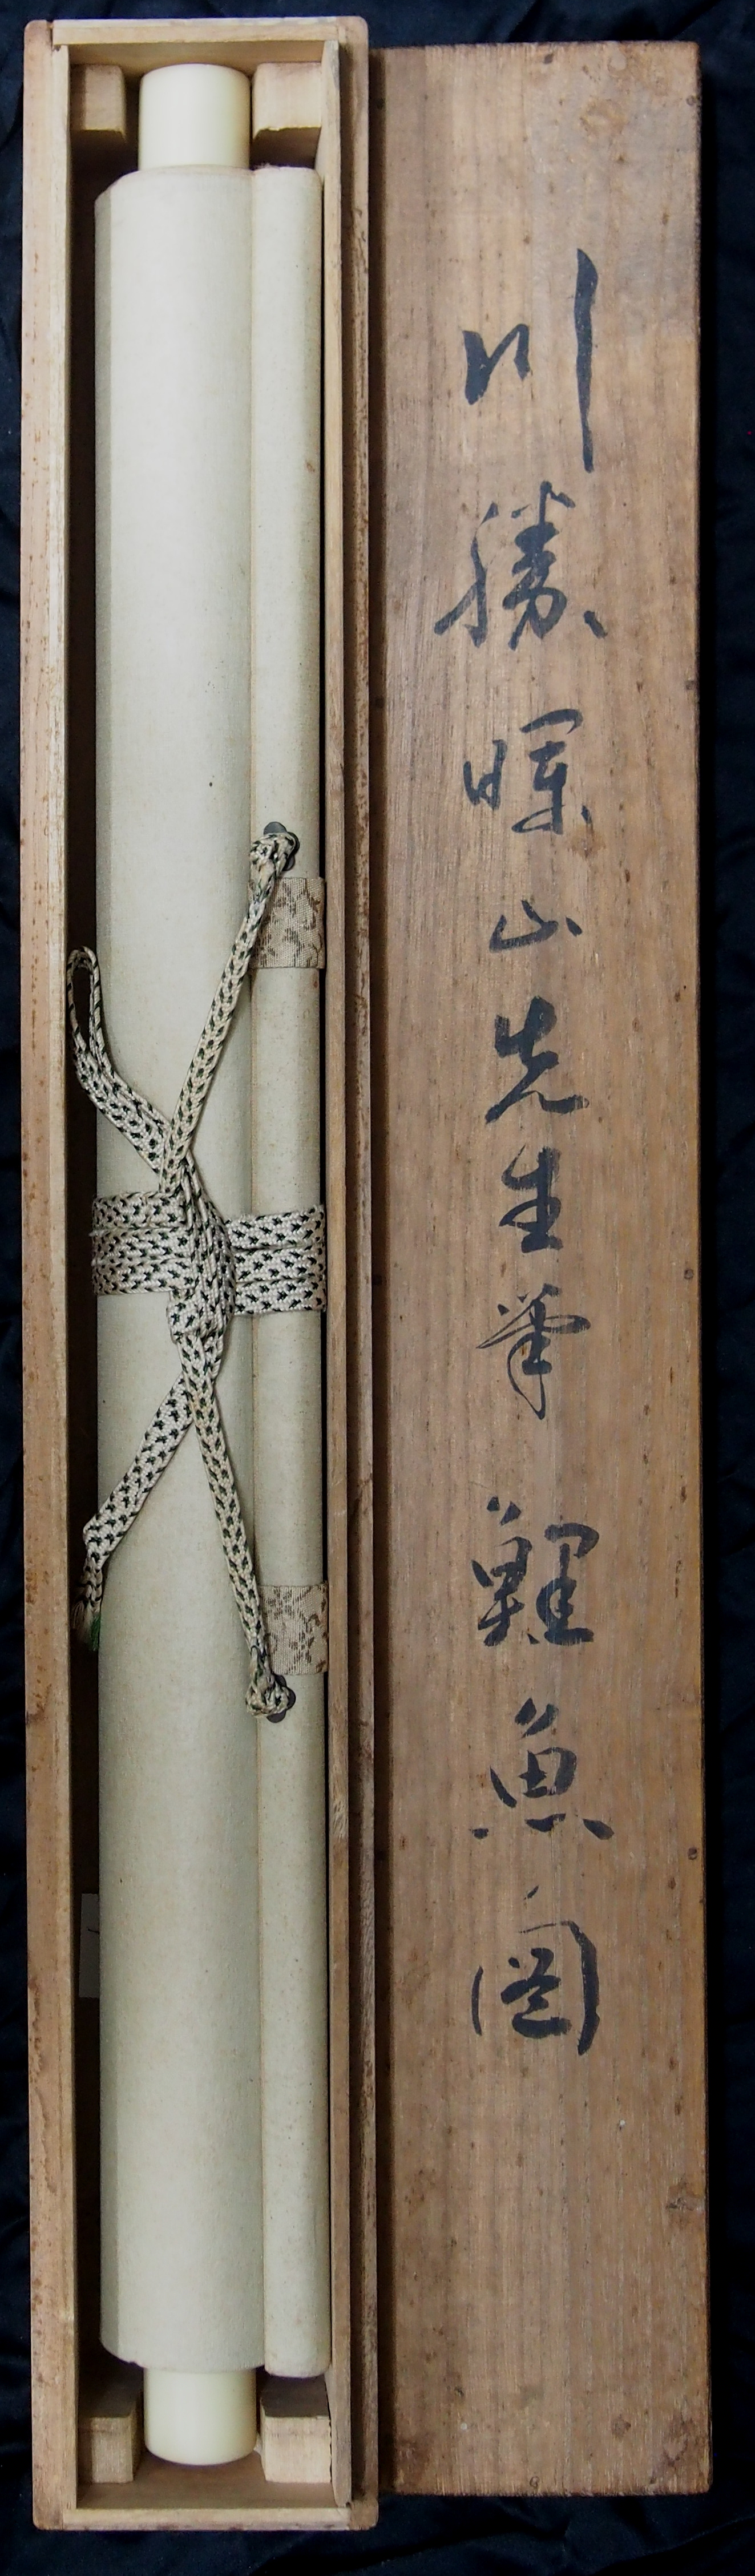 川勝暉山先生筆 鯉魚図